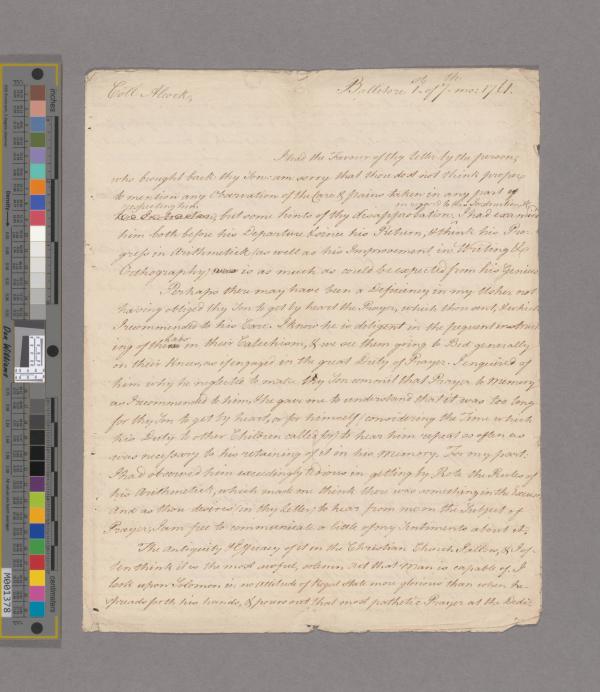 Coll Alcock,
Balletore 1st of 7th mo: 1761.
I had the Favour of thy Letter by the person,
who brought back thy Son: am sorry that thou dost not think proper
to mention any Observation of the Care & pains taken in any part of
respecting him in regard to his Instruction &c
but some hints of thy disapprobation; I had examined
him both before his Departure & since his Return, & think his Pro-
gress in Arithmetick as well as his Improvement in Writing &
Orthography, is as much as could be expected from his Genius.
Perhaps there may have been a Deficiency in my Usher not
having obliged thy Son to get by heart the Prayer, which thou sent, & which
I recommended to his Care. I know he is diligent in the frequent instruct-
ing of the Lads in their Catechism, & we see them going to Bed generally
on their Knees, as if engaged in the great Duty of Prayer. I enquired of
him why he neglected to make thy Son commit that Prayer to Memory
as I recommended to him, & he gave me to understand that it was too long
for thy Son to get by heart, or for himself (considering the Time which
his Duty to other Children called for) to hear him repeat as often as
was necessary to his retaining of it in his Memory. For my part
I had observed him exceedingly tedious in getting by Rote the Rules of
his Arithmetick, which made me think there was something in the Excuse,
And as thou desires (in thy Letter) to hear from me on the Subject of
Prayer, I am free to communicate a little of my Sentiments about it.
The antiquity & Efficacy of it in the Christian Church I allow, & Of-
ten think it is the most awful, solemn act that Man is capable of. I
look upon Solomon in no attitude of Regal State more glorious than when he
spreads forth his hands, & pours out that most pathetic Prayer at the Dedi-
inches
centimeters
Don Williams
M001378